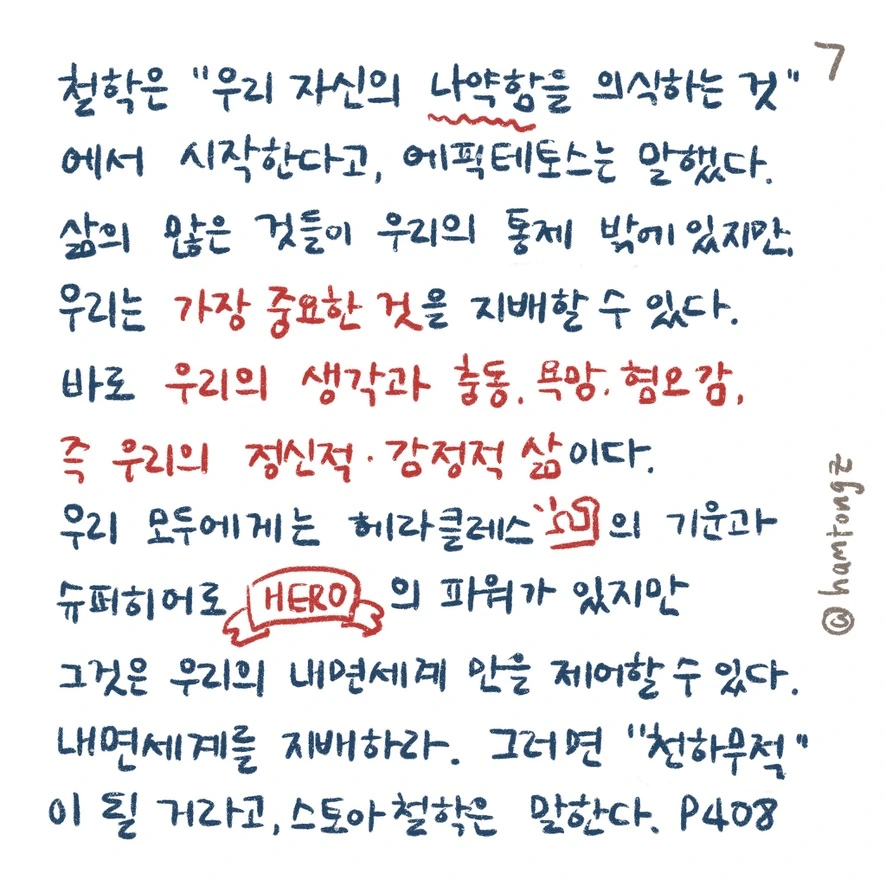 7
철학은 "우리 자신의 나약함을 의식하는 것"
에서 시작한다고, 에픽테토스는 말했다.
삶의 많은 것들이 우리의 통제 밖에 있지만,
우리는 가장 중요한 것을 지배할 수 있다.
바로 우리의 생각과 충동, 욕망, 혐오감,
즉 우리의 정신적·감정적 삶이다.
우리 모두에게는 헤라클레스의 기운과
슈퍼히어로 HERO의 파워가 있지만
그것은 우리의 내면세계 만을 제어할 수 있다.
내면세계를 지배하라. 그러면 "천하무적"
이 될 거라고, 스토아 철학은 말한다. P408
@hamtongz